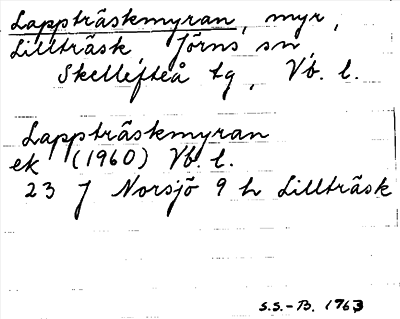 Lappträskmyran, myr,
Lillträsk Jörns sn,
Skellefteå tg, Vb. l.
Lappträskmyran
ek (1960) Vb. l.
23 J Norsjö 9 h Lillträsk
S.S.-B. 1763